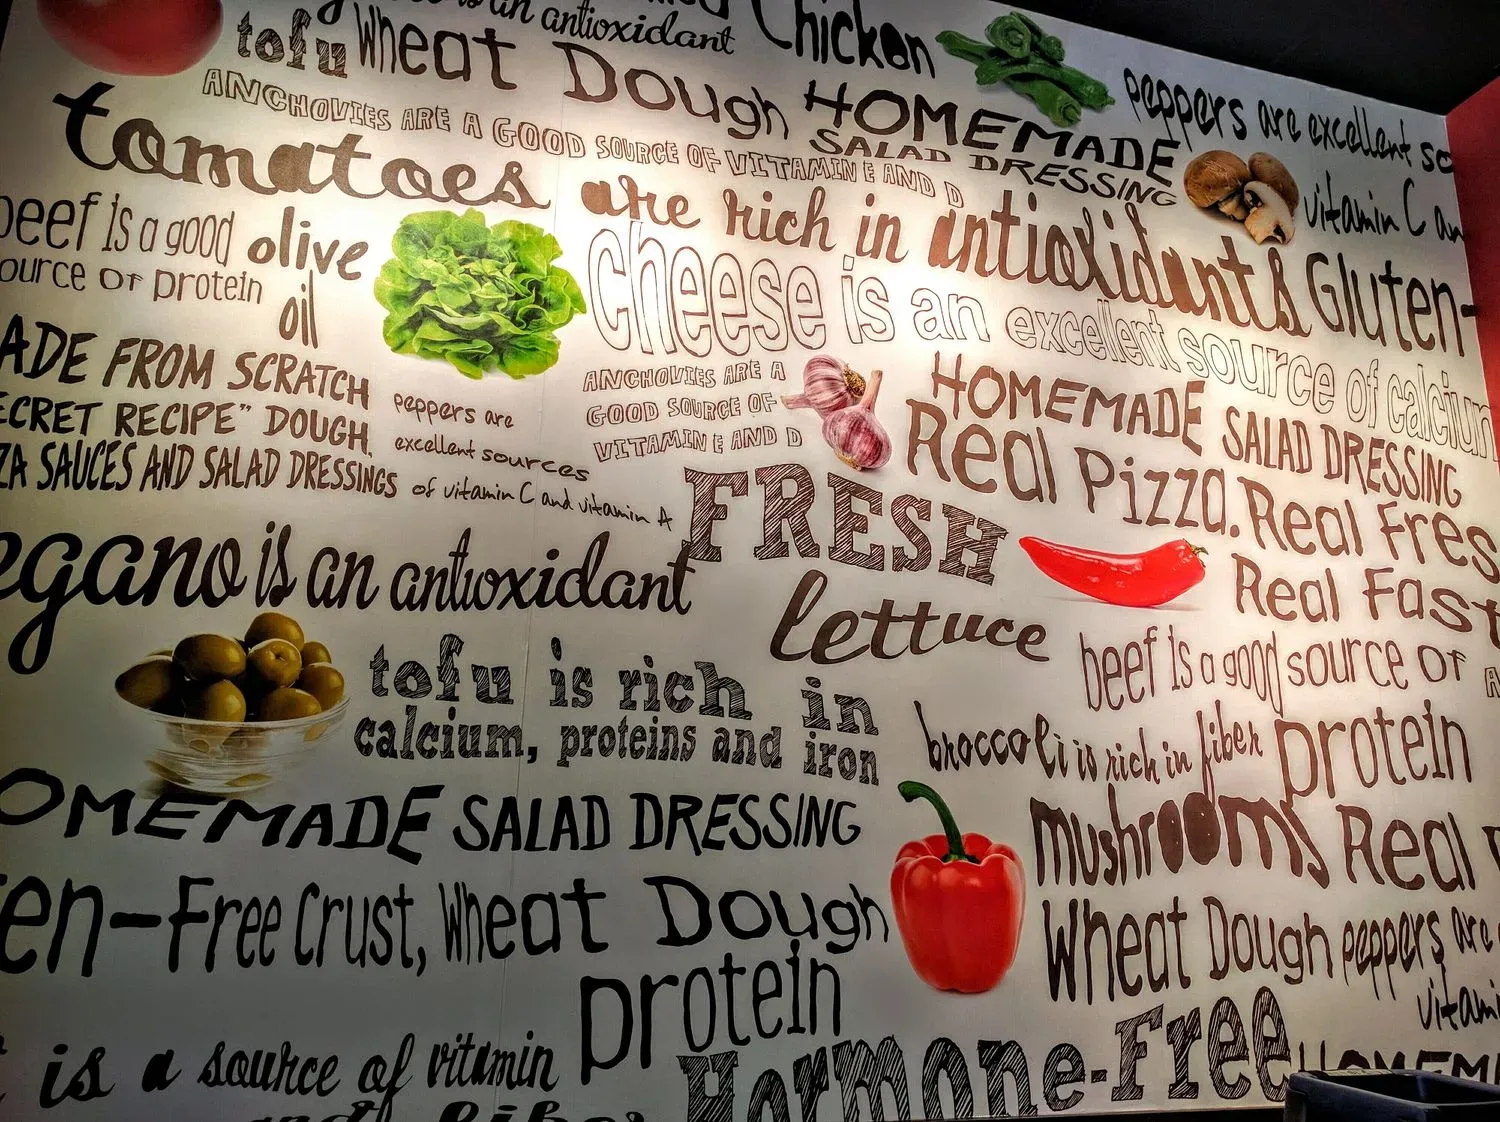 is an antioxidant
Chicken
tofu Wheat Dough HOMEMADE
SALAD DRESSING
peppers are excellent
vitamin C
ANCHOVIES ARE A GOOD SOURCE OF VITAMIN E AND D
tomatoes are rich in antioxidants Gluten-
beef is a good
source of protein
olive
oil
cheese is an excellent source of calcium
MADE FROM SCRATCH
SECRET RECIPE" DOUGH,
ZA SAUCES AND SALAD DRESSINGS
peppers are
excellent sources
of vitamin C and vitamin A
ANCHOVIES ARE A
GOOD SOURCE OF
VITAMIN E AND D
HOMEMADE SALAD DRESSING
Real Pizza. Real Fres
Real Fast
FRESH
lettuce
egano is an antioxidant
beef is a good source of
protein
tofu is rich in
calcium, proteins and iron
broccoli is rich in fiber
mushrooms Real
HOMEMADE SALAD DRESSING
en-Free Crust, Wheat Dough
Wheat Dough peppers are
vitami
protein
is a source of vitamin
and fiber
Hormone-Free
HOMEM